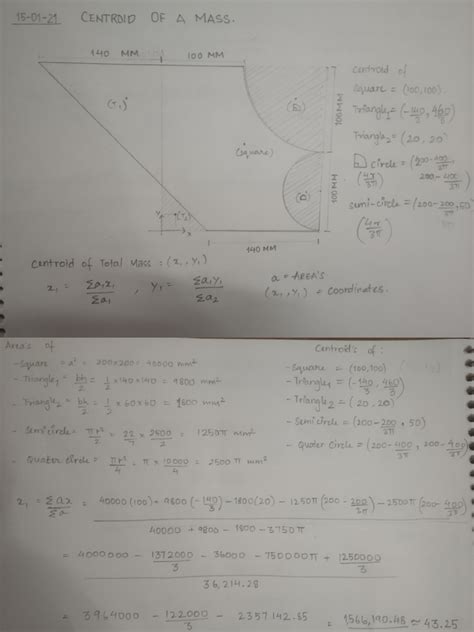 15-01-21 CENTROID OF A MASS.
140 MM
100 MM
(T₁)
(square)
100 MM
100 MM
Y
X
(T₂)
140 MM
centroid of
square = (100,100).
Triangle₁ = (-140/3, 460/3)
Triangle₂ = (20, 20)
circle = (200-400/3π, 200-400/3π)
(4r/3π)
semi-circle = (200-200/3π, 50)
(4r/3π)
Centroid of Total Mass : (x₁, y₁)
x₁ = Σa₁x₁/Σa₁ , y₁ = Σa₁y₁/Σa₂
a = AREA'S
(x₁, y₁) = coordinates.
Area's of
- Square = a² = 200×200 = 40000 mm²
- Triangle₁ = bh/2 = 1/2 ×140×140 = 9800 mm²
- Triangle₂ = bh/2 = 1/2 × 60×60 = 1800 mm²
- Semicircle = πr²/2 = 22/7 × 2500/2 = 1250π mm²
- Quater circle = πr²/4 = π × 10000/4 = 2500 π mm²
Centroid's of :
- Square = (100,100)
- Triangle₁ = (-140/3, 460/3)
- Triangle₂ = (20, 20)
- Semicircle = (200-200/3π, 50)
- Quater Circle = (200-400/3π, 200-400/3π)
x₁ = Σax/Σa = 40000(100) + 9800(-140/3) - 1800(20) - 1250π(200-200/3π) - 2500π(200-400/3π)
40000 + 9800 - 1800 - 3750π
= 4000000 - 1372000/3 - 36000 - 750000π + 1250000/3
36,214.28
= 3964000 - 122000/3 - 2357142.85 = 1566,190.48 ≈ 43.25